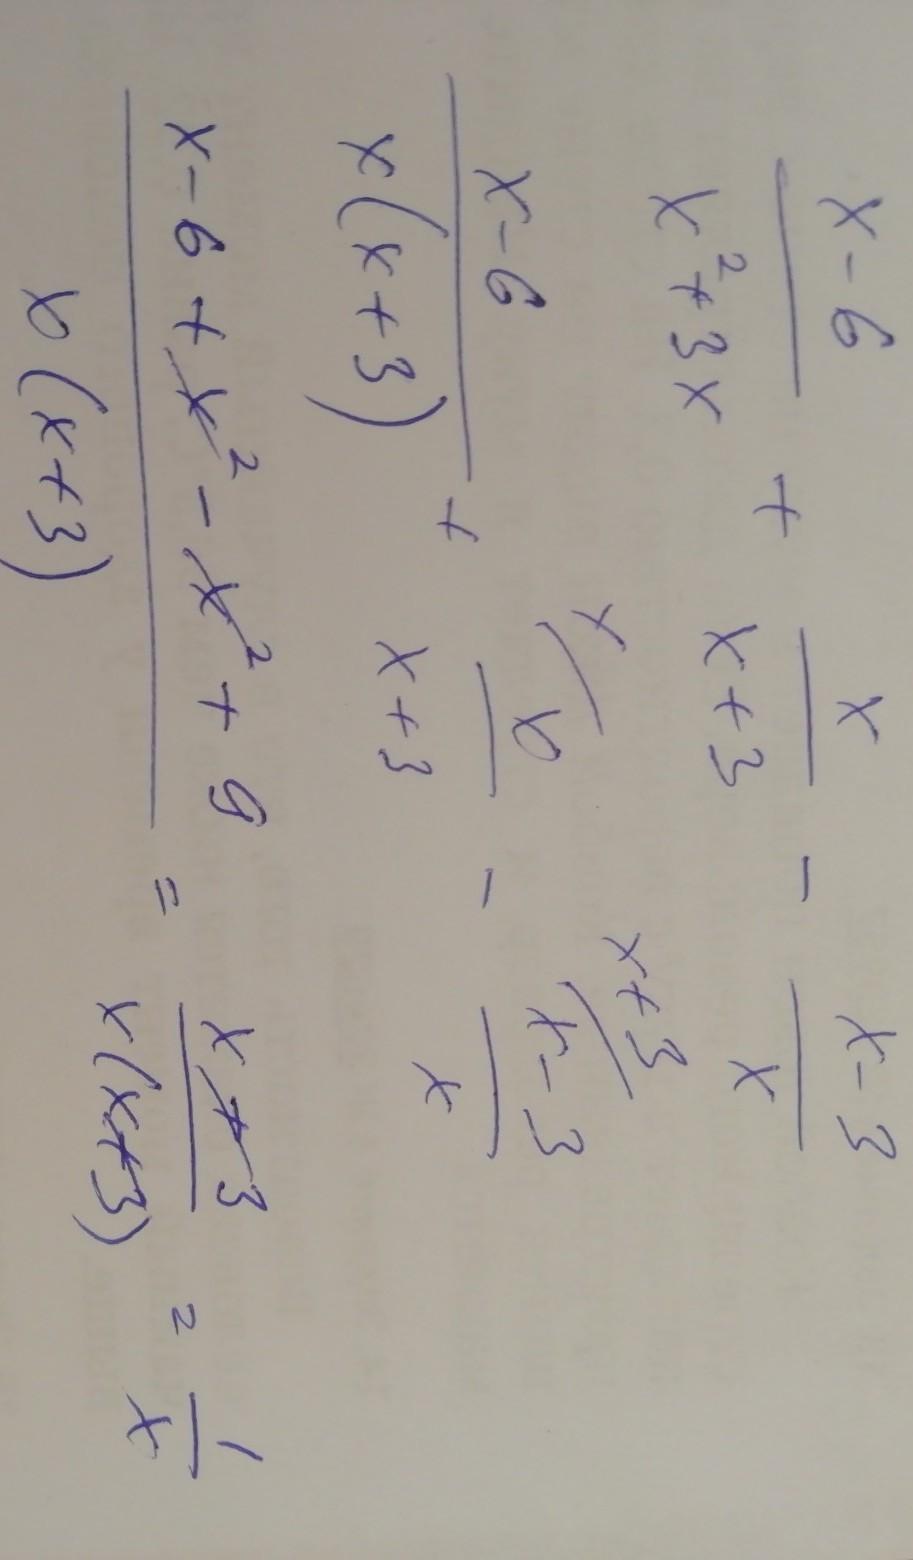 (x-6)/(x²+3x) + x/(x+3) - (x-3)/x
(x-6)/(x(x+3)) + x/(x+3) ^x - (x-3)/x ^x+3
(x-6+x²-x²+9)/(x(x+3)) = (x+3)/(x(x+3)) = 1/x